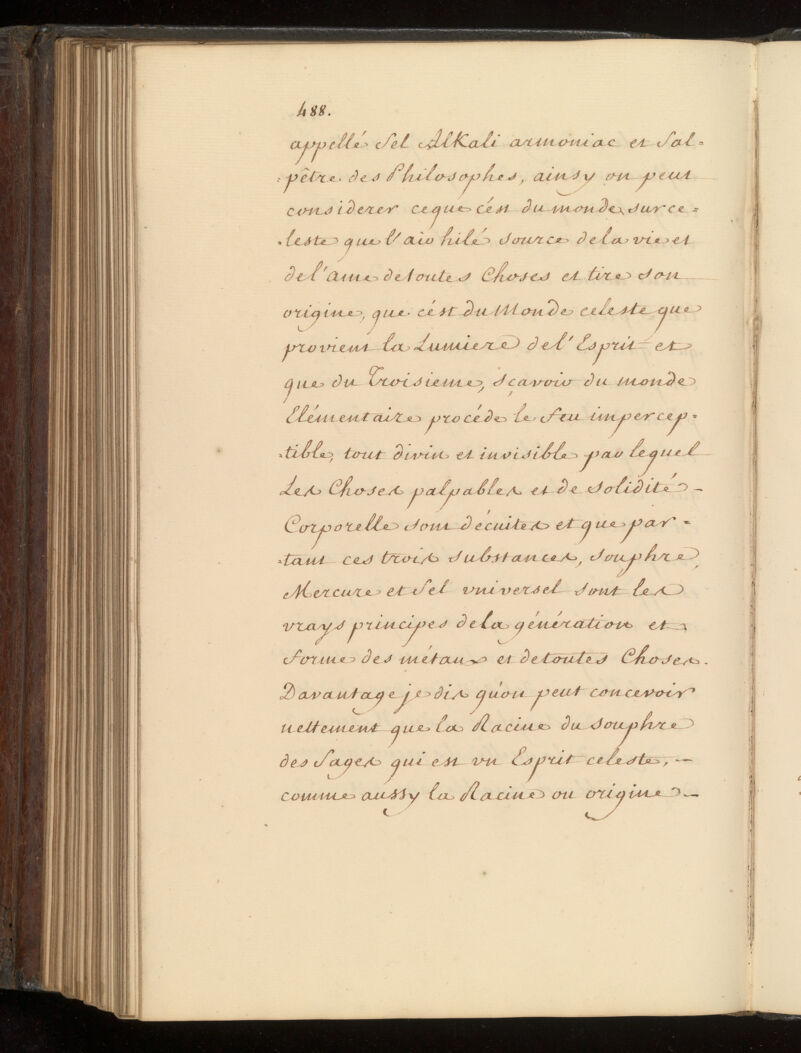 488.
appellé Sel Alkali armoniac et Sal=
=pêtre des Philosophes, ainsy on peut
considerer ceque cést du monde surce=
=leste que l'air hilé source dela vie et
del'ame detoutes Choses et tire son
origine, que cést du Monde celeste que
provient la Lumiere del'Esprit et
que du Troisieme, sçavoir du monde
Elémentaire procéde le feu impercep=
=tible, tout divin et invisible par lequel
Les Choses palpables et de solidité –
Corporelle sont décuites et que par =
=tant ces trois substances, souphre,
Mercure et Sel vniversel sont les
vrays principes dela génération et
forme des métaux et detoutes Choses.
Davantage je dis qu'on peut concevoir
nettement que la Racine du souphre
des Sages qui est vn Esprit celeste, –
comme aussy la Racine ou origine –